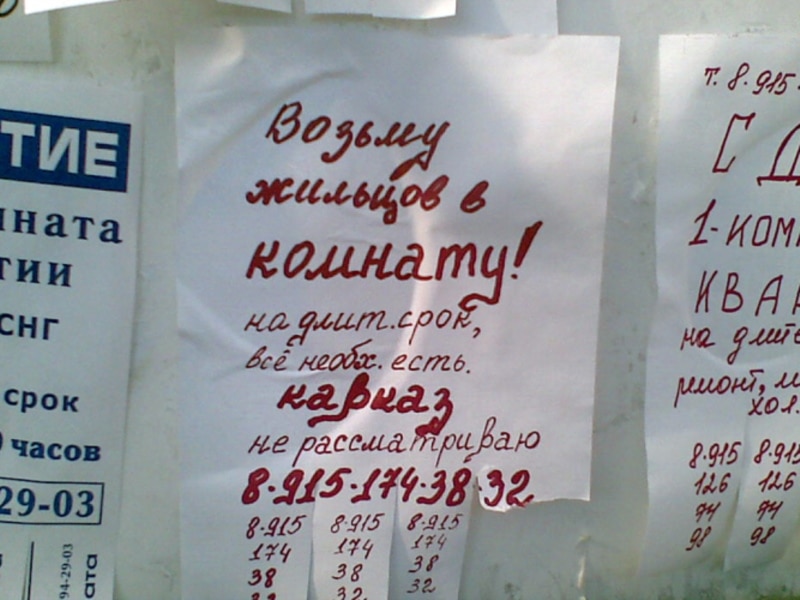 ТИЕ
срок
часов
29-03
СНГ
Возьму
жильцов в
комнату!
на длит. срок,
всё необх. есть.
кавказ
не рассматриваю
8-915-174-38-32
8-915 8-915 8-915
174 174 174
38 38 38
32 32 32
т. 8-915
1-КОМ
КВА
на длите
ремонт,
хол.
8-915 8-915
126 126
94 94
98 98